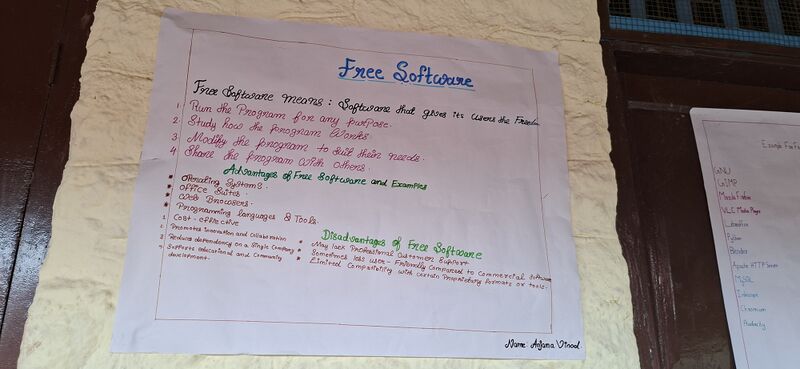 Free Software
Free Software means: Software that gives its users the Freedom
1. Run the Program for any purpose.
2. Study how the program works
3 Modify the program to suit their needs.
4 Share the program with others.
Advantages of Free Software and Examples
Operating Systems.
Office Suites.
Web Browsers.
Programming languages & Tools.
1 Cost-effective
2 Promotes innovation and collaboration
3 Reduces dependency on a Single Company
4 Supports educational and Community
development.
Disadvantages of Free Software
May lack Professional Customer Support
Sometimes less user-Friendly Compared to Commercial Software
Limited Compatibility with certain Proprietary formats or tools.
Name: Anjana Vinod
GNU
GIMP
Mozilla Firefox
VLC Media Player
Libreoffice
Python
Blender
Apache HTTP Server
MySQL
Inkscape
Chromium
Audacity